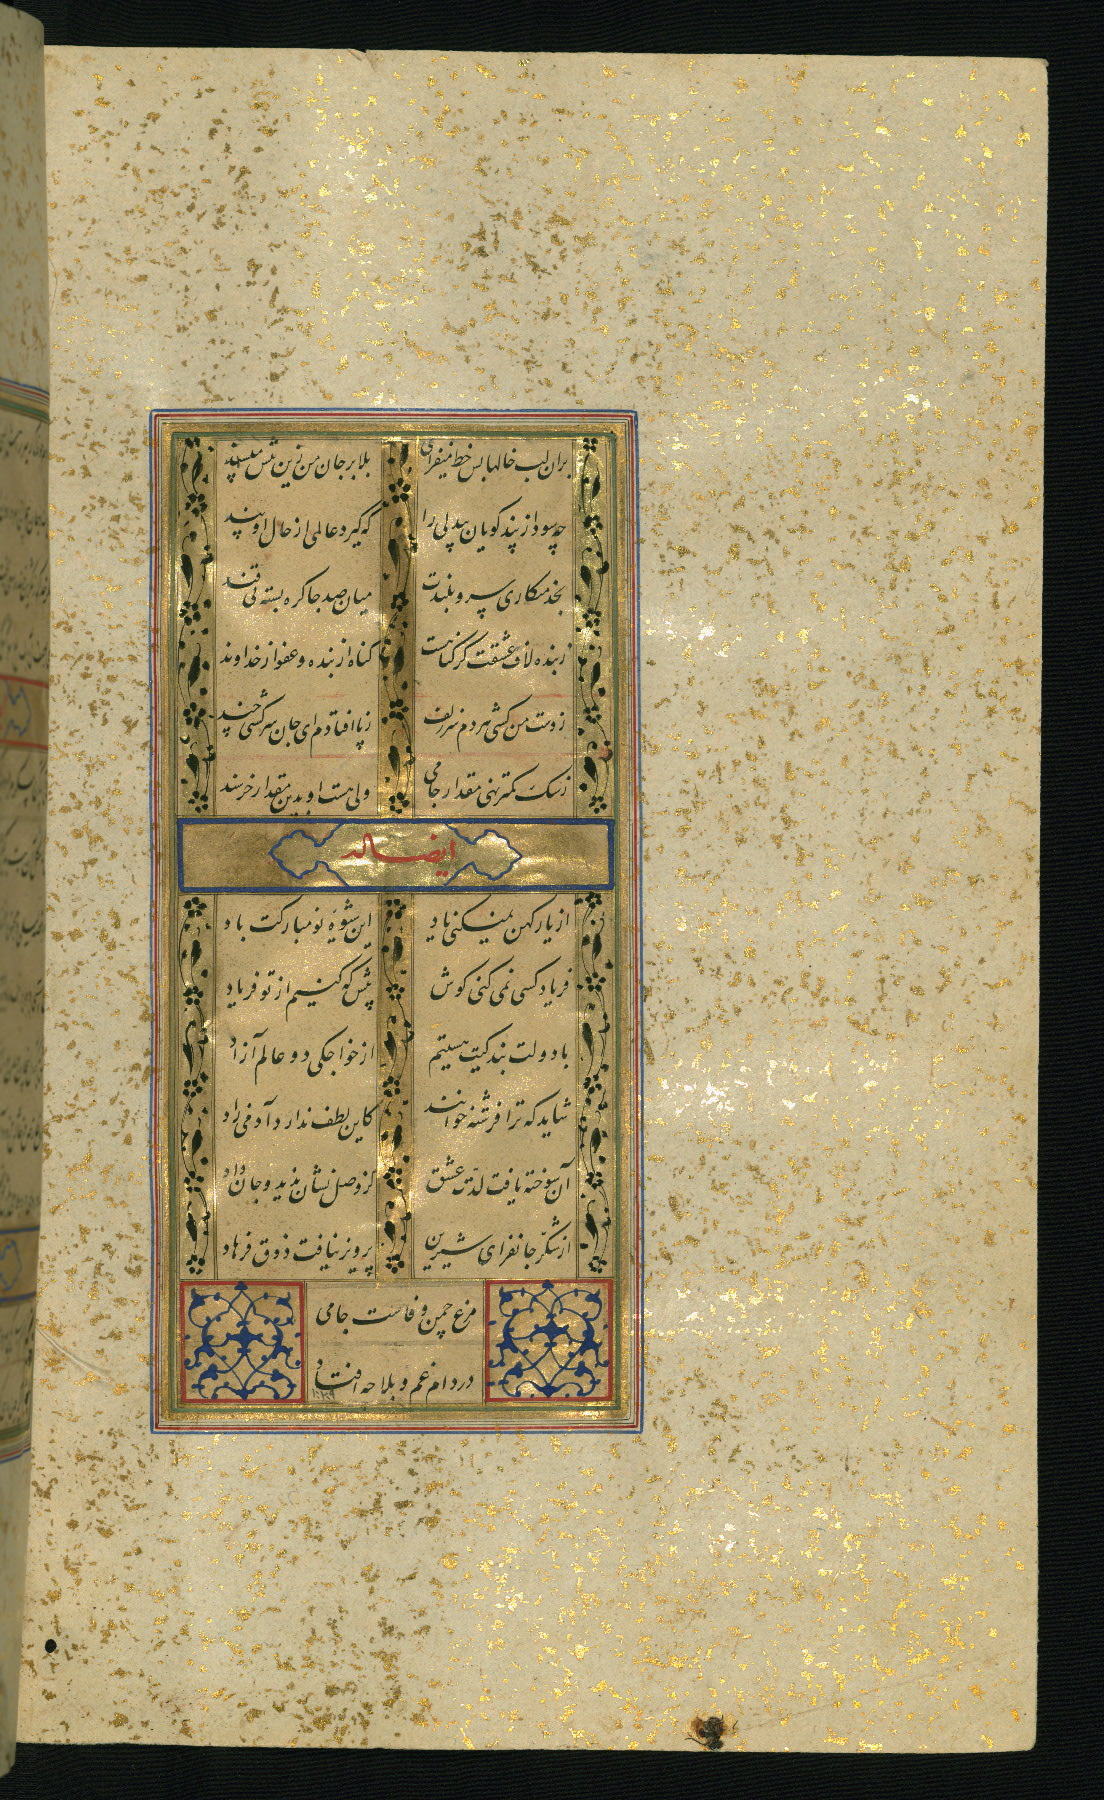 بران لب خالها بس خط میفزای بلا بر جان من زین بیش مپسند
چه سود از پند کویان بیدلی را که گیرد عالمی از حال او پند
بخدمتکاری سرو بلندت میان صد جا کره بسته نی قند
ز بنده لاف عشقت کر کناهست کناه از بنده و عفو از خداوند
ز دست من کشی هر دم سر زلف ز پا افتادم ای جان سرکشی چند
ز سک کمتر نهی مقدار جامی ولی هست او بدین مقدار خرسند
ایضا له
از یار کهن نمیکنی یاد این شیوه نو مبارکت باد
فریاد کسی نمی کنی کوش پیش که کنیم از تو فریاد
با دولت بندکیت هستیم از خواجکی دو عالم آزاد
شاید که ترا فرشته خوانند کاین لطف ندارد آدمی زاد
آن سوخته یافت لذت عشق کز وصل نشان ندید و جان داد
از شکر جانفزای شیرین پرویز نیافت ذوق فرهاد
مرغ چمن وفاست جامی
در دام غم و بلا چه افتاد